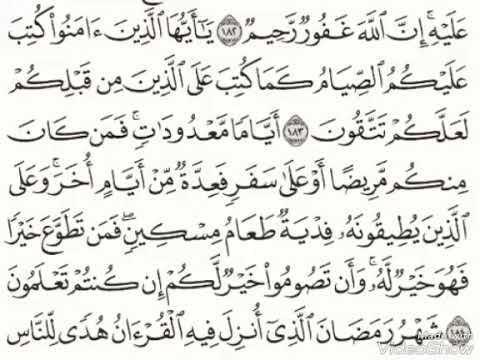 عَلَيْهِ ۚ إِنَّ ٱللَّهَ غَفُورٌ رَّحِيمٌ ١٨٢ يَـٰٓأَيُّهَا ٱلَّذِينَ ءَامَنُوا۟ كُتِبَ
عَلَيْكُمُ ٱلصِّيَامُ كَمَا كُتِبَ عَلَى ٱلَّذِينَ مِن قَبْلِكُمْ
لَعَلَّكُمْ تَتَّقُونَ ١٨٣ أَيَّامًا مَّعْدُودَٰتٍ ۚ فَمَن كَانَ
مِنكُم مَّرِيضًا أَوْ عَلَىٰ سَفَرٍ فَعِدَّةٌ مِّنْ أَيَّامٍ أُخَرَ ۚ وَعَلَى
ٱلَّذِينَ يُطِيقُونَهُۥ فِدْيَةٌ طَعَامُ مِسْكِينٍ ۖ فَمَن تَطَوَّعَ خَيْرًا
فَهُوَ خَيْرٌ لَّهُۥ ۚ وَأَن تَصُومُوا۟ خَيْرٌ لَّكُمْ ۖ إِن كُنتُمْ تَعْلَمُونَ
١٨٤ شَهْرُ رَمَضَانَ ٱلَّذِىٓ أُنزِلَ فِيهِ ٱلْقُرْءَانُ هُدًى لِّلنَّاسِ
VideoShow